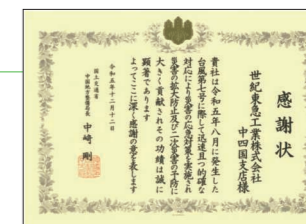 感謝状
世紀東急工業株式会社
中四国支店様
貴社は令和五年八月に発生した
台風第七号に際して迅速且つ的確な
対応により災害の応急対策を実施され
災害の拡大防止及び二次災害の予防に
大きく貢献されその功績は誠に
顕著であります
よってここに深く感謝の意を表します
令和五年十二月十二日
国土交通省
中国地方整備局長
中﨑 剛